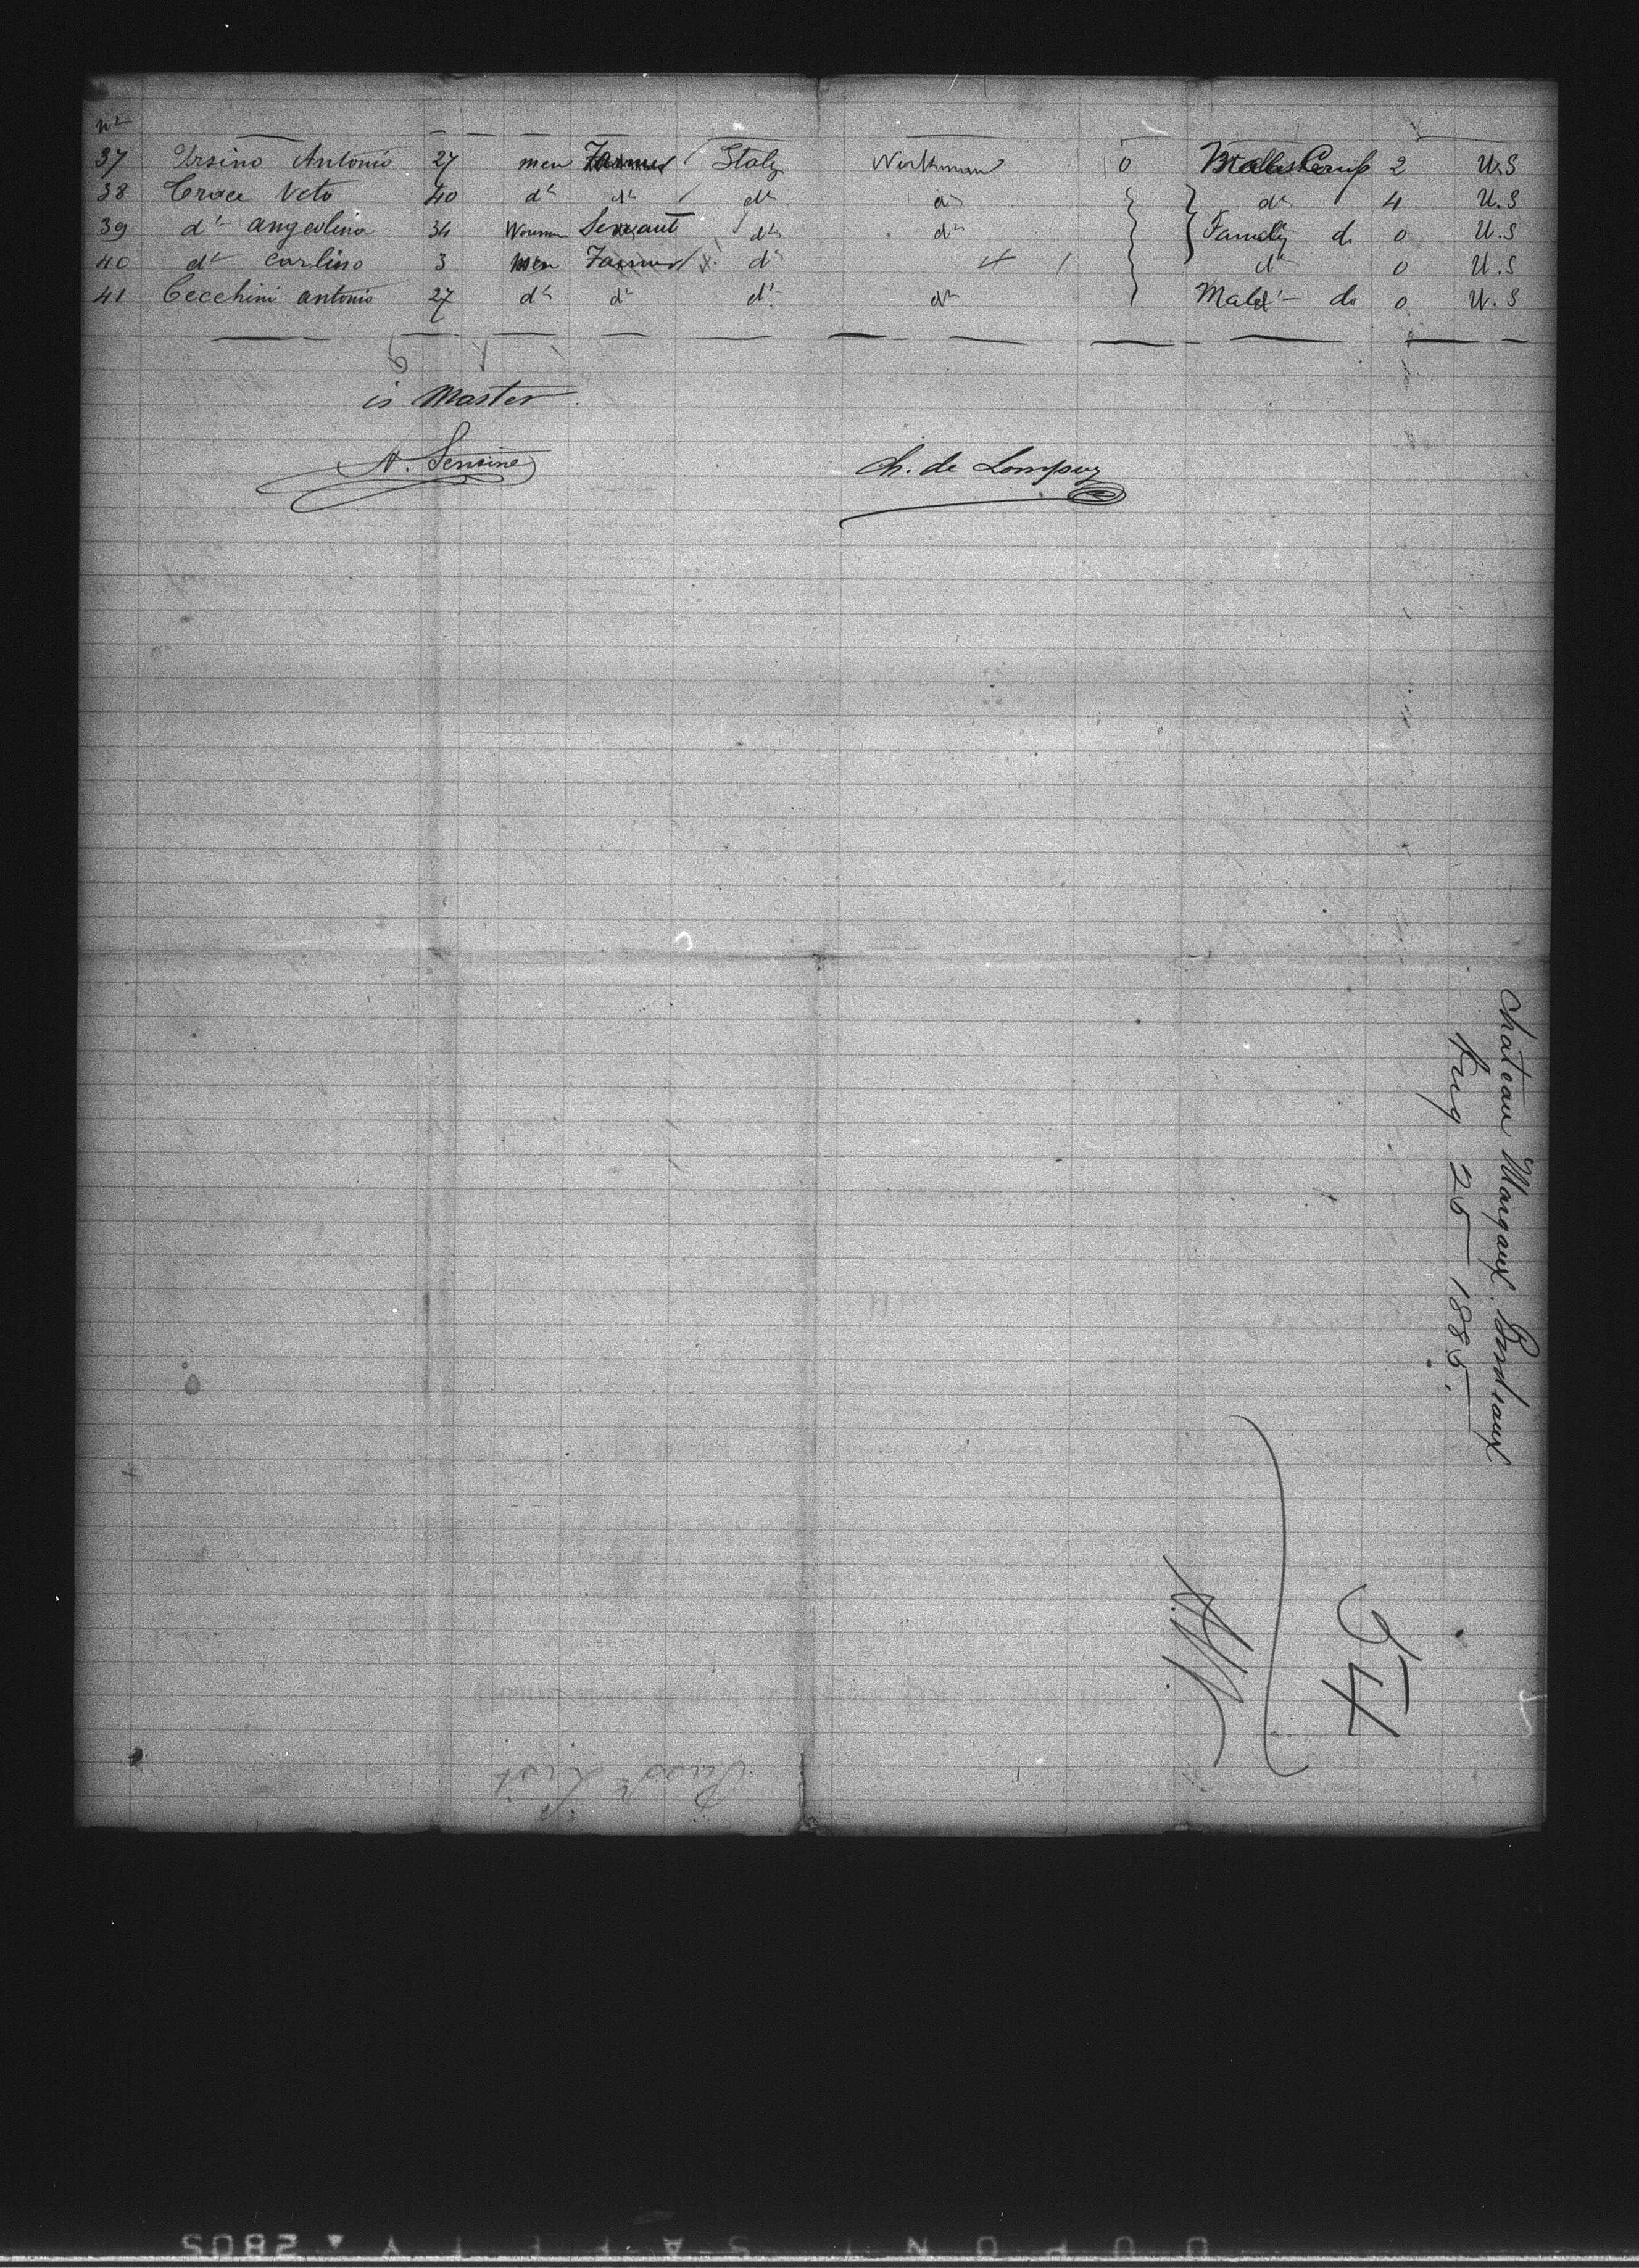 No
37 Ursino Antonio 27 men Farmer Italy Workman 0 Males Camp 2 U.S
38 Croce Veto 40 do do do do do 4 U.S
39 do angeolina 34 Woman Servant do do Family do 0 U.S
40 do carlino 3 men Farmer do 4 do 0 U.S
41 Cecchini antonio 27 do do do do Male do 0 U.S
is Master
Ch. de Lompuy
Chateau Margaux, Bordeaux
Aug 25 1885.
54
Pass List
DUPONT SAFETY 2802